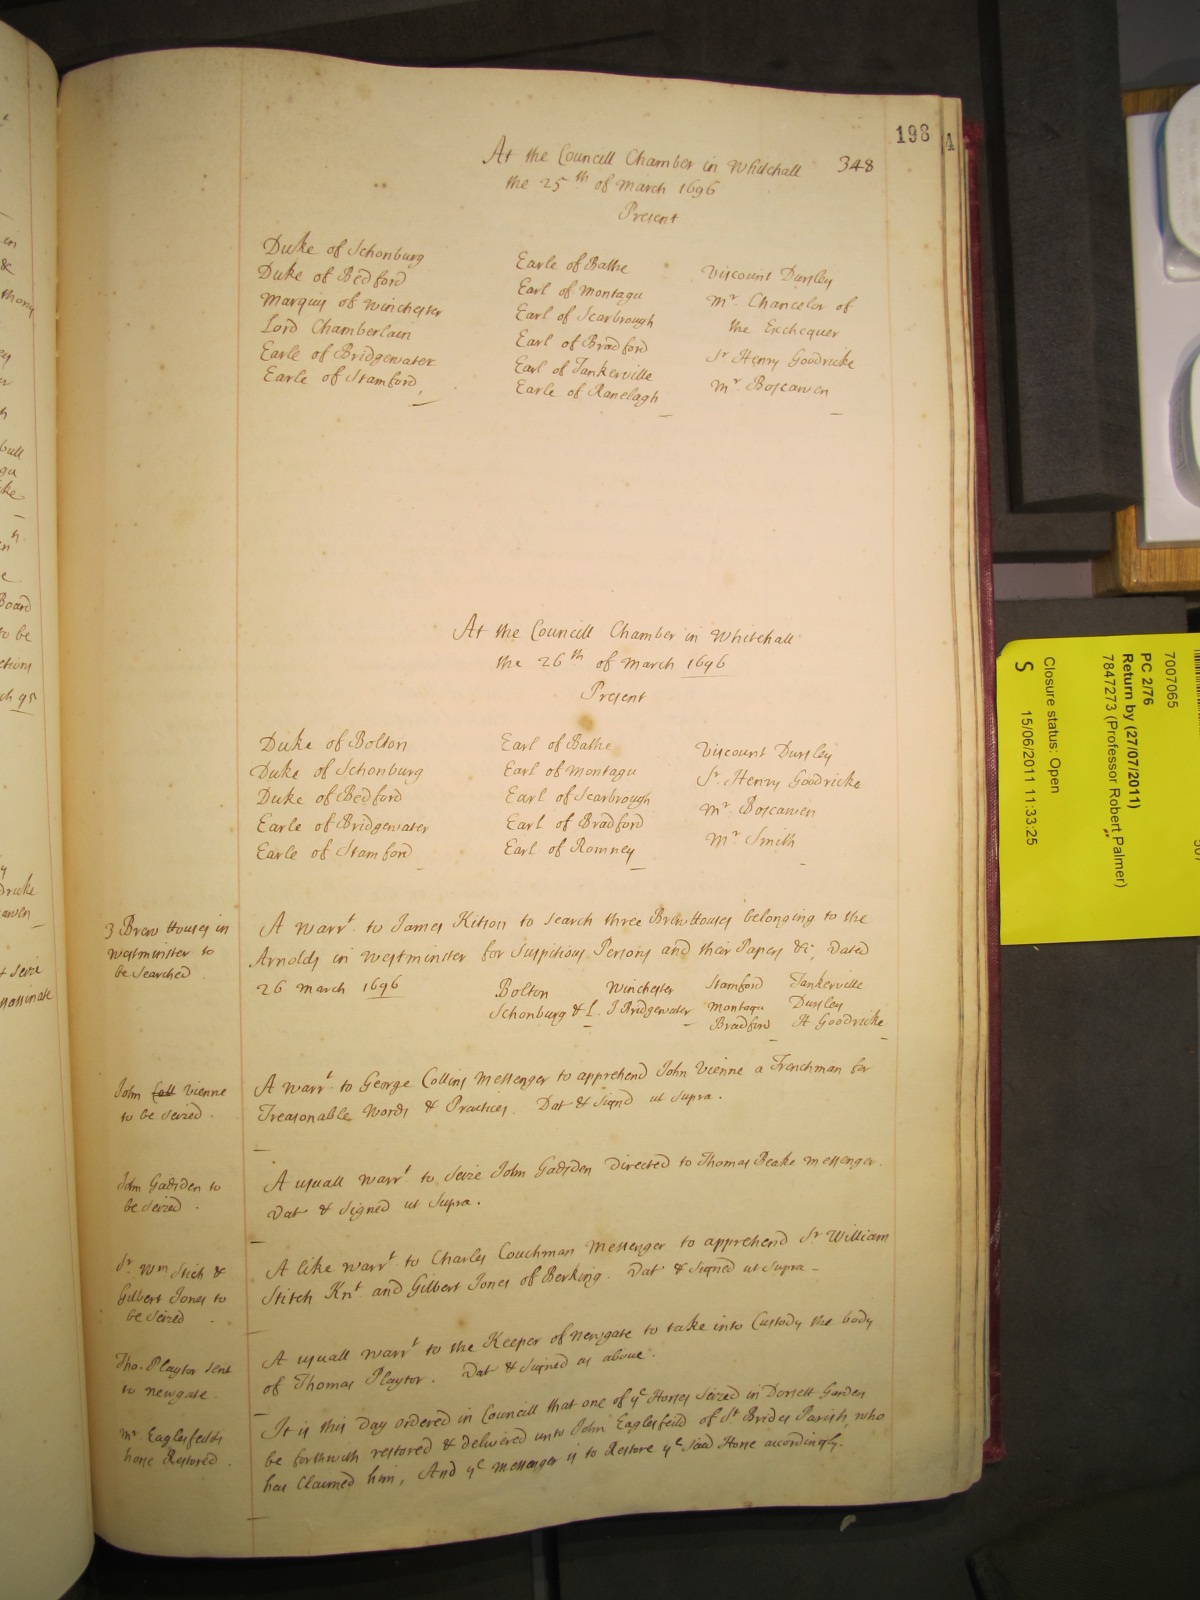 198 A
348
At the Councill Chamber in Whitehall
the 25th of March 1696
Present
Duke of Schonburg
Duke of Bedford
Marquis of Winchester
Lord Chamberlain
Earle of Bridgewater
Earle of Stamford
Earle of Bathe
Earl of Montagu
Earl of Scarbrough
Earl of Bradford
Earl of Tankerville
Earle of Ranelagh
Viscount Dursley
Mr. Chancelor of
the Exchequer
Sr Henry Goodricke
Mr. Boscawen
At the Councill Chamber in Whitehall
the 26th of March 1696
Present
Duke of Bolton
Duke of Schonburg
Duke of Bedford
Earle of Bridgewater
Earle of Stamford
Earl of Bathe
Earl of Montagu
Earl of Scarbrough
Earl of Bradford
Earl of Romney
Viscount Dursley
Sr. Henry Goodricke
Mr. Boscawen
Mr Smith
3 Brew Houses in
Westminster to
be searched
A warrt. to James Kitson to search three BrewHouses belonging to the
Arnolds in Westminster for Suspitious Persons and their Papers &c; Dated
26 March 1696
Bolton
Schonburg & L.
Winchester
J Bridgewater
Stamford
Montagu
Bradford
Tankerville
Dursley
H. Goodricke
John Vienne
to be seized.
A warrt. to George Collins Messenger to apprehend John Vienne a Frenchman for
Treasonable Words & Practices. Dat & signd ut supra.
John Gadsden to
be seized.
A usuall warrt. to seize John Gadsden Directed to Thomas Beake messenger.
Dat & signed ut supra.
Sr Wm Stich &
Gilbert Jones to
be seized.
A like warrt. to Charles Couchman Messenger to apprehend Sr William
Stitch Knt. and Gilbert Jones of Berking. Dat & signed ut supra -
Tho. Playtor sent
to newgate.
A usuall warrt to the Keeper of newgate to take into Custody the body
of Thomas Playtor. Dat & signed as above.
Mr Eaglesfeilds
horse Restored.
It is this Day ordered in Councill that one of ye Horses seized in Dorsett Garden
be forthwith restored & delivered unto John Eaglesfeild of St Brides Parish, who
has Claimed him, And ye messenger is to Restore ye said Horse accordingly.
7007065
PC 2/76
Return by (27/07/2011)
7847273 (Professor Robert Palmer)
Closure status: Open
S 15/06/2011 11:33:25